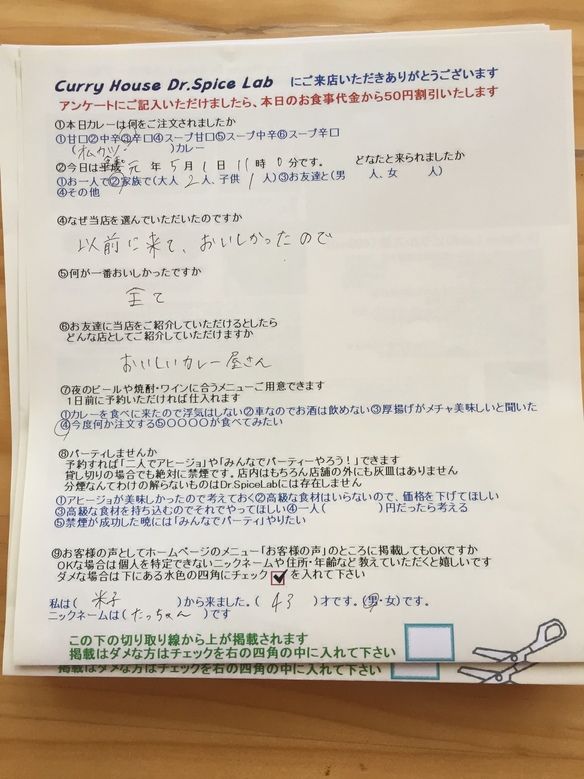 Curry House Dr.Spice Lab にご来店いただきありがとうございます
アンケートにご記入いただけましたら、本日のお食事代金から50円割引いたします
①本日カレーは何をご注文されましたか
①甘口②中辛③辛口④スープ甘口⑤スープ中辛⑥スープ辛口
( カツ )カレー
②今日は 元 年 5 月 1 日 11 時 0 分です。 どなたと来られましたか
①お一人で②家族で(大人 2 人、子供 1 人)③お友達と(男 人、女 人)
④その他
④なぜ当店を選んでいただいたのですか
以前に来て、おいしかったので
⑤何が一番おいしかったですか
全て
⑥お友達に当店をご紹介していただけるとしたら
どんな店としてご紹介していただけますか
おいしいカレー屋さん
⑦夜のビールや焼酎・ワインに合うメニューご用意できます
1日前に予約いただければ仕入れます
①カレーを食べに来たので浮気はしない②車なのでお酒は飲めない③厚揚げがメチャ美味しいと聞いた
④今度何か注文する⑤〇〇〇〇が食べてみたい
⑧パーティしませんか
予約すれば「二人でアヒージョ」や「みんなでパーティーやろう!」できます
貸し切りの場合でも絶対に禁煙です。店内はもちろん店舗の外にも灰皿はありません
分煙なんてわけの解らないものはDr.SpiceLabには存在しません
①アヒージョが美味しかったので考えておく②高級な食材はいらないので、価格を下げてほしい
③高級な食材を持ち込むのでそれでやってほしい④一人( )円だったら考える
⑤禁煙が成功した暁には「みんなでパーティ」やりたい
⑨お客様の声としてホームページのメニュー「お客様の声」のところに掲載してもOKですか
OKな場合は個人を特定できないニックネームや住所・年齢など教えていただくと嬉しいです
ダメな場合は下にある水色の四角にチェック を入れて下さい
私は( 米子 )から来ました。( 43 )才です。(男・女)です。
ニックネームは( たっちゃん )です
この下の切り取り線から上が掲載されます
掲載はダメな方はチェックを右の四角の中に入れて下さい
掲載はダメな方はチェックを右の四角の中に入れて下さい